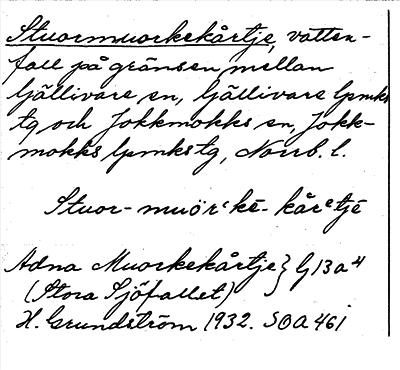 Stuormuorkekårtje, vatten-
fall på gränsen mellan
Gällivare sn, Gällivare lpmks
tg och Jokkmokks sn, Jokk-
mokks lpmkstg, Norrb. l.
Stuor-muörˈkē-kårˈtjē
Adna Muorkekårtje } G 13 a 4
(Stora Sjöfallet)
H. Grundström 1932. SOA 461